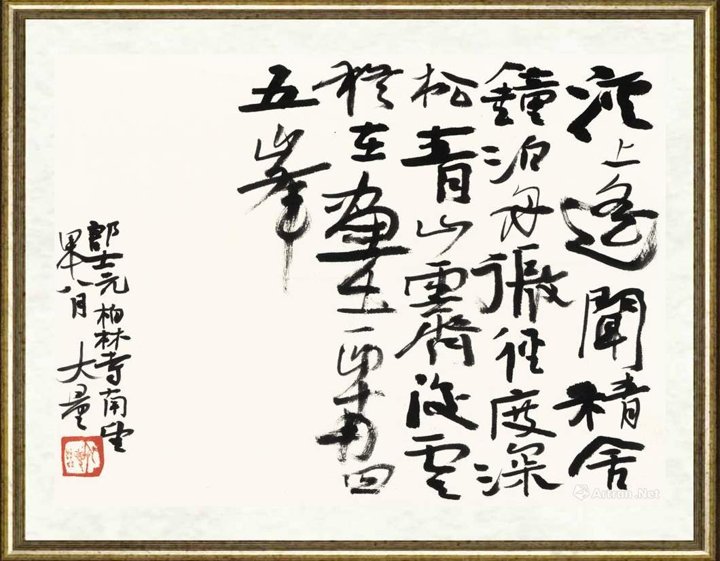 溪上遙聞精舍
鐘泊舟微徑度深
松青山霽後雲
猶在畫出西南四
五峯
郎士元柏林寺南望
八月 大量
Artron.Net